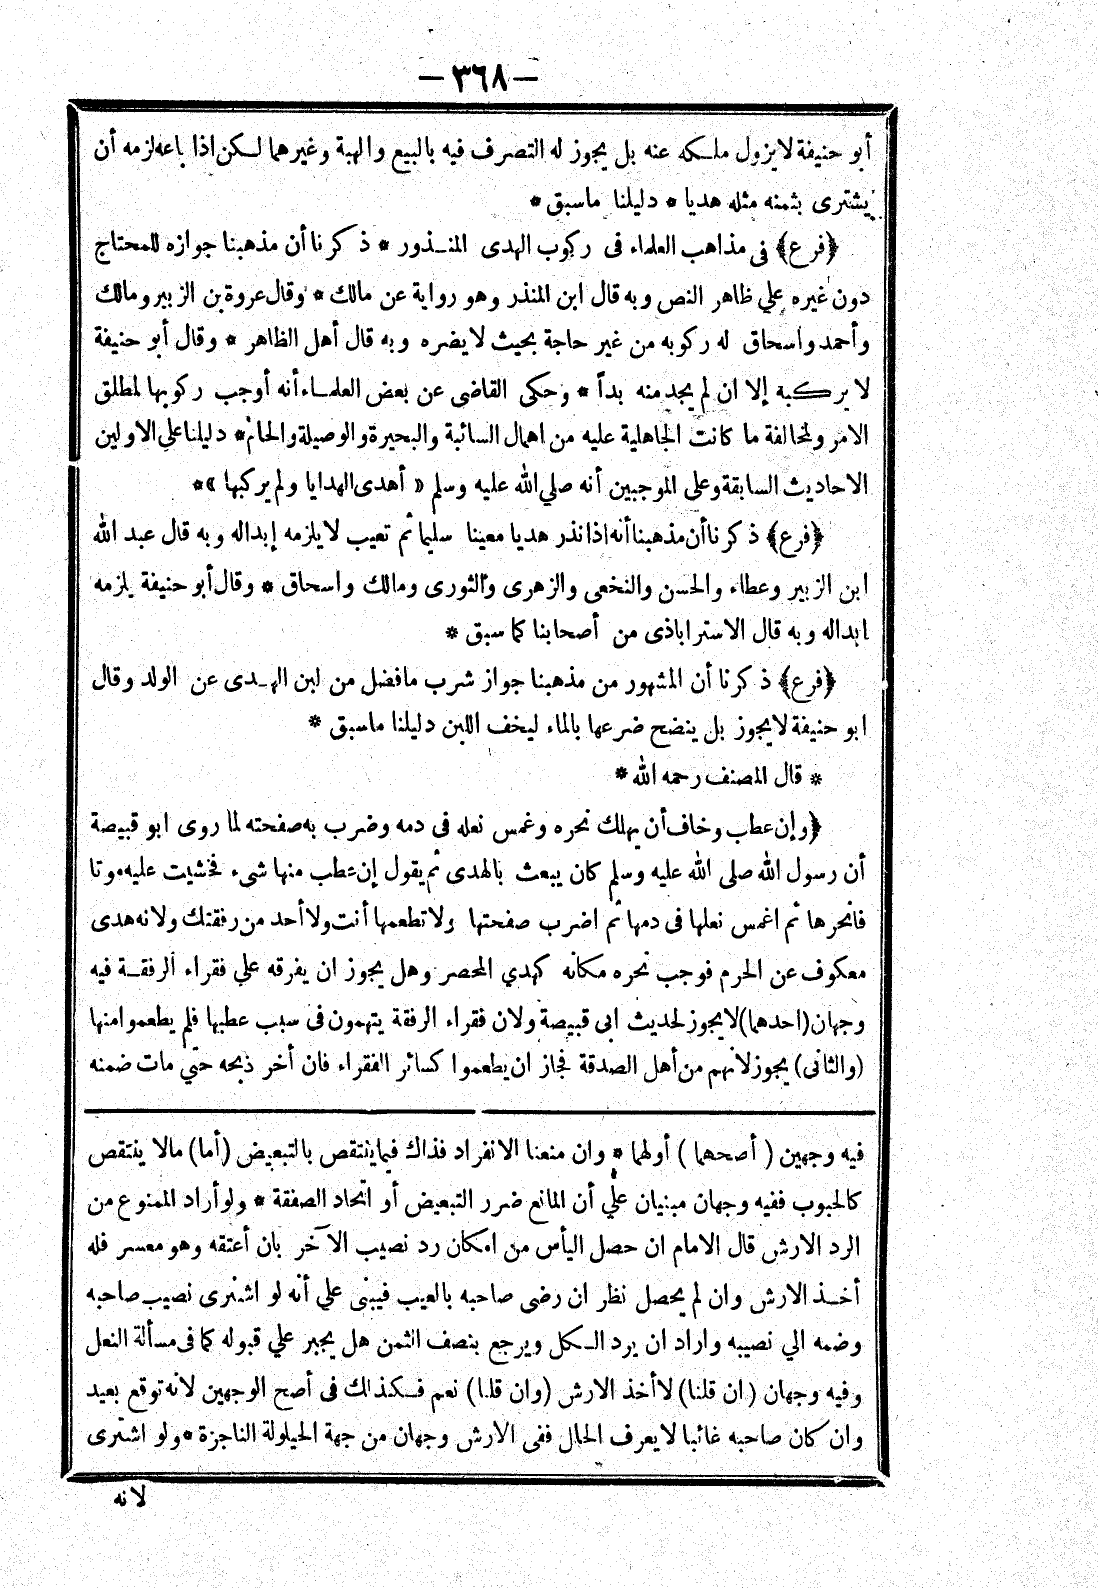 — ٣٦٨ —
أبو حنيفة لا يزول ملكه عنه بل يجوز له التصرف فيه بالبيع والهبة وغيرهما لكن اذا باعه لزمه أن
يشترى بثمنه مثله هديا * دليلنا ماسبق *
﴿فرع﴾ فى مذاهب العلماء فى ركوب الهدى المنذور * ذكرنا أن مذهبنا جوازه للمحتاج
دون غيره علي ظاهر النص وبه قال ابن المنذر وهو رواية عن مالك * وقال عروة بن الزبير ومالك
وأحمد واسحاق له ركوبه من غير حاجة بحيث لا يضره وبه قال أهل الظاهر * وقال أبو حنيفة
لا يركبه إلا ان لم يجد منه بدأ * وحكى القاضى عن بعض العلماء أنه أوجب ركوبها لمطلق
الامر ولمخالفة ما كانت الجاهلية عليه من اهمال السائبة والبحيرة والوصيلة والحام * دليلنا علي الاولين
الاحاديث السابقة وعلى الموجبين أنه صلي الله عليه وسلم « أهدى الهدايا ولم يركبها » *
﴿فرع﴾ ذكرنا أن مذهبنا أنه اذا نذر هديا معينا سليما ثم تعيب لا يلزمه إبداله وبه قال عبد الله
ابن الزبير وعطاء والحسن والنخعى والزهرى والثورى ومالك واسحاق * وقال أبو حنيفة يلزمه
ابداله وبه قال الاستراباذى من أصحابنا كما سبق *
﴿فرع﴾ ذكرنا أن المشهور من مذهبنا جواز شرب مافضل من لبن الهدى عن الولد وقال
ابو حنيفة لا يجوز بل ينضح ضرعها بالماء ليخف اللبن دليلنا ماسبق *
* قال المصنف رحمه الله *
﴿وإن عطب وخاف أن يهلك نحره وغمس نعله فى دمه وضرب به صفحته لما روى ابو قبيصة
أن رسول الله صلى الله عليه وسلم كان يبعث بالهدى ثم يقول إن عطب منها شىء فخشيت عليه موتا
فانحرها ثم اغمس نعلها فى دمها ثم اضرب صفحتها ولا تطعمها أنت ولا أحد من رفقتك ولانه هدى
معكوف عن الحرم فوجب نحره مكانه كهدي المحصر وهل يجوز ان يفرقه علي فقراء الرفقة فيه
وجهان (احدهما) لا يجوز لحديث ابى قبيصة ولان فقراء الرفقة يتهمون فى سبب عطبها فلم يطعموا منها
(والثانى) يجوز لانهم من أهل الصدقة فجاز ان يطعموا كسائر الفقراء فان أخر ذبحه حتي مات ضمنه
فيه وجهين ( أصحهما ) أولهما * وان منعنا الانفراد فذاك فيما ينتقص بالتبعيض (أما) مالا ينتقص
كالحبوب ففيه وجهان مبنيان علي أن المانع ضرر التبعيض أو اتحاد الصفقة * ولو أراد الممنوع من
الرد الارش قال الامام ان حصل اليأس من امكان رد نصيب الآخر بان أعتقه وهو معسر فله
أخذ الارش وان لم يحصل نظر ان رضى صاحبه بالعيب فيبنى علي أنه لو اشترى نصيب صاحبه
وضمه الي نصيبه واراد ان يرد الكل ويرجع بنصف الثمن هل يجبر علي قبوله كما فى مسألة النعل
وفيه وجهان ( ان قلنا) لا أخذ الارش (وان قلنا) نعم فكذلك فى أصح الوجهين لانه توقع بعيد
وان كان صاحبه غائبا لا يعرف الحال ففى الارش وجهان من جهة الحيلولة الناجزة * ولو اشترى
لانه